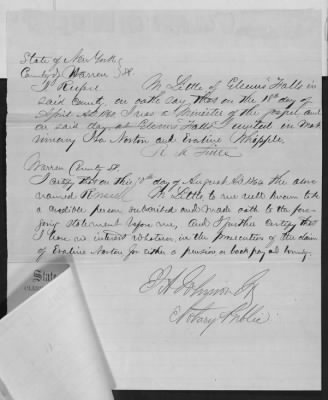 State of New York
County of Warren SS.
I Russel M Little of Glenns Falls in
said County on oath say that on the 18th day of
April AD 1860 I was a Minister of the gospel and
on said day at Glenns Falls I united in mat
rimony Ira Norton and Eveline Whipple.
R. M. Little
Warren County SS.
I certify that on this day of August AD 1864 the above
named Russell M. Little to me well known to be
a credible person subscribed and made oath to the fore-
going statement before me, and I further certify that
I have no interest whatever in the prosecution of the claim
of Eveline Norton for either a pension or back pay and bounty.
Johnson Jr
Notary Public
State